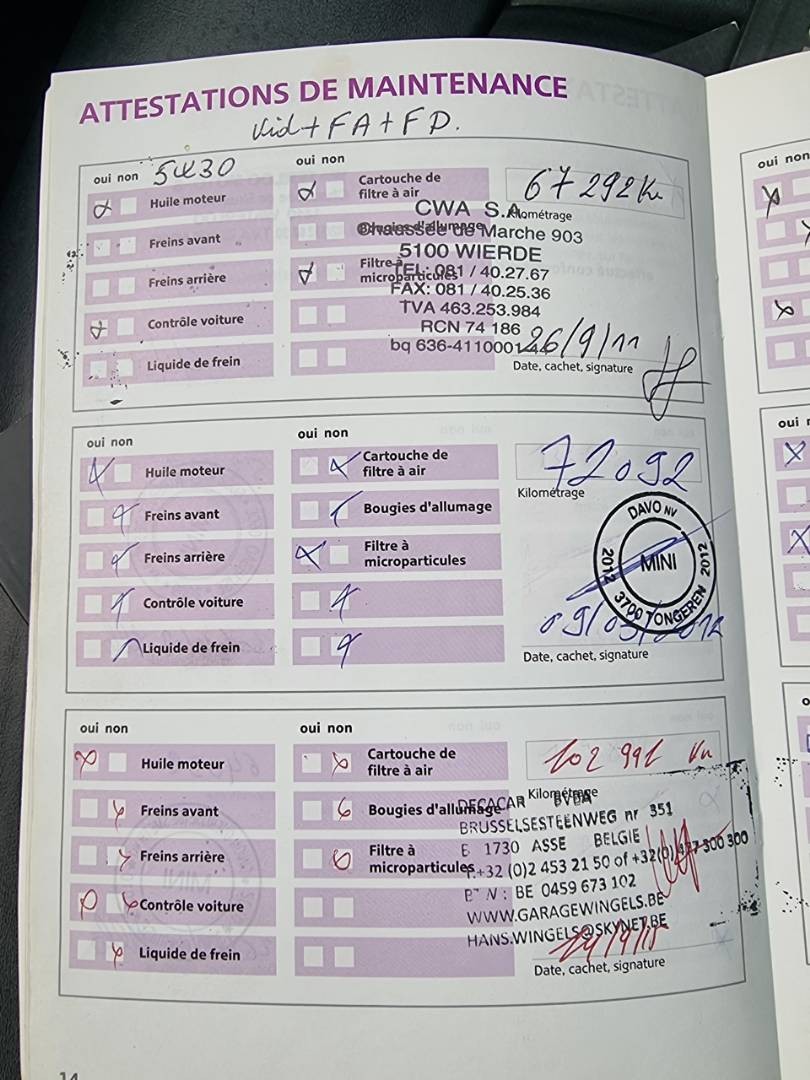 ATTESTATIONS DE MAINTENANCE
Vid + FA + FP.
oui non 5W30 oui non
Huile moteur
Cartouche de
filtre à air
67 292 Km
Kilométrage
Freins avant
Bougies d'allumage
Freins arrière
Filtre à
microparticules
Contrôle voiture
Liquide de frein
CWA S.A.
Chaussée de Marche 903
5100 WIERDE
TEL: 081 / 40.27.67
FAX: 081 / 40.25.36
TVA 463.253.984
RCN 74 186
bq 636-411000
26/9/11
Date, cachet, signature
oui non oui non
Huile moteur
Cartouche de
filtre à air
72092
Kilométrage
Freins avant
Bougies d'allumage
Freins arrière
Filtre à
microparticules
Contrôle voiture
Liquide de frein
DAVO NV
2012 MINI 2012
3700 TONGEREN
Date, cachet, signature
oui non oui non
Huile moteur
Cartouche de
filtre à air
102 991 Km
Kilométrage
Freins avant
Bougies d'allumage
Freins arrière
Filtre à
microparticules
Contrôle voiture
Liquide de frein
BVBA
BRUSSELSESTEENWEG nr 351
1730 ASSE BELGIE
+32 (0)2 453 21 50 of +32(0)477 300 300
BE 0459 673 102
WWW.GARAGEWINGELS.BE
HANS.WINGELS@SKYNET.BE
Date, cachet, signature
14
oui non
oui